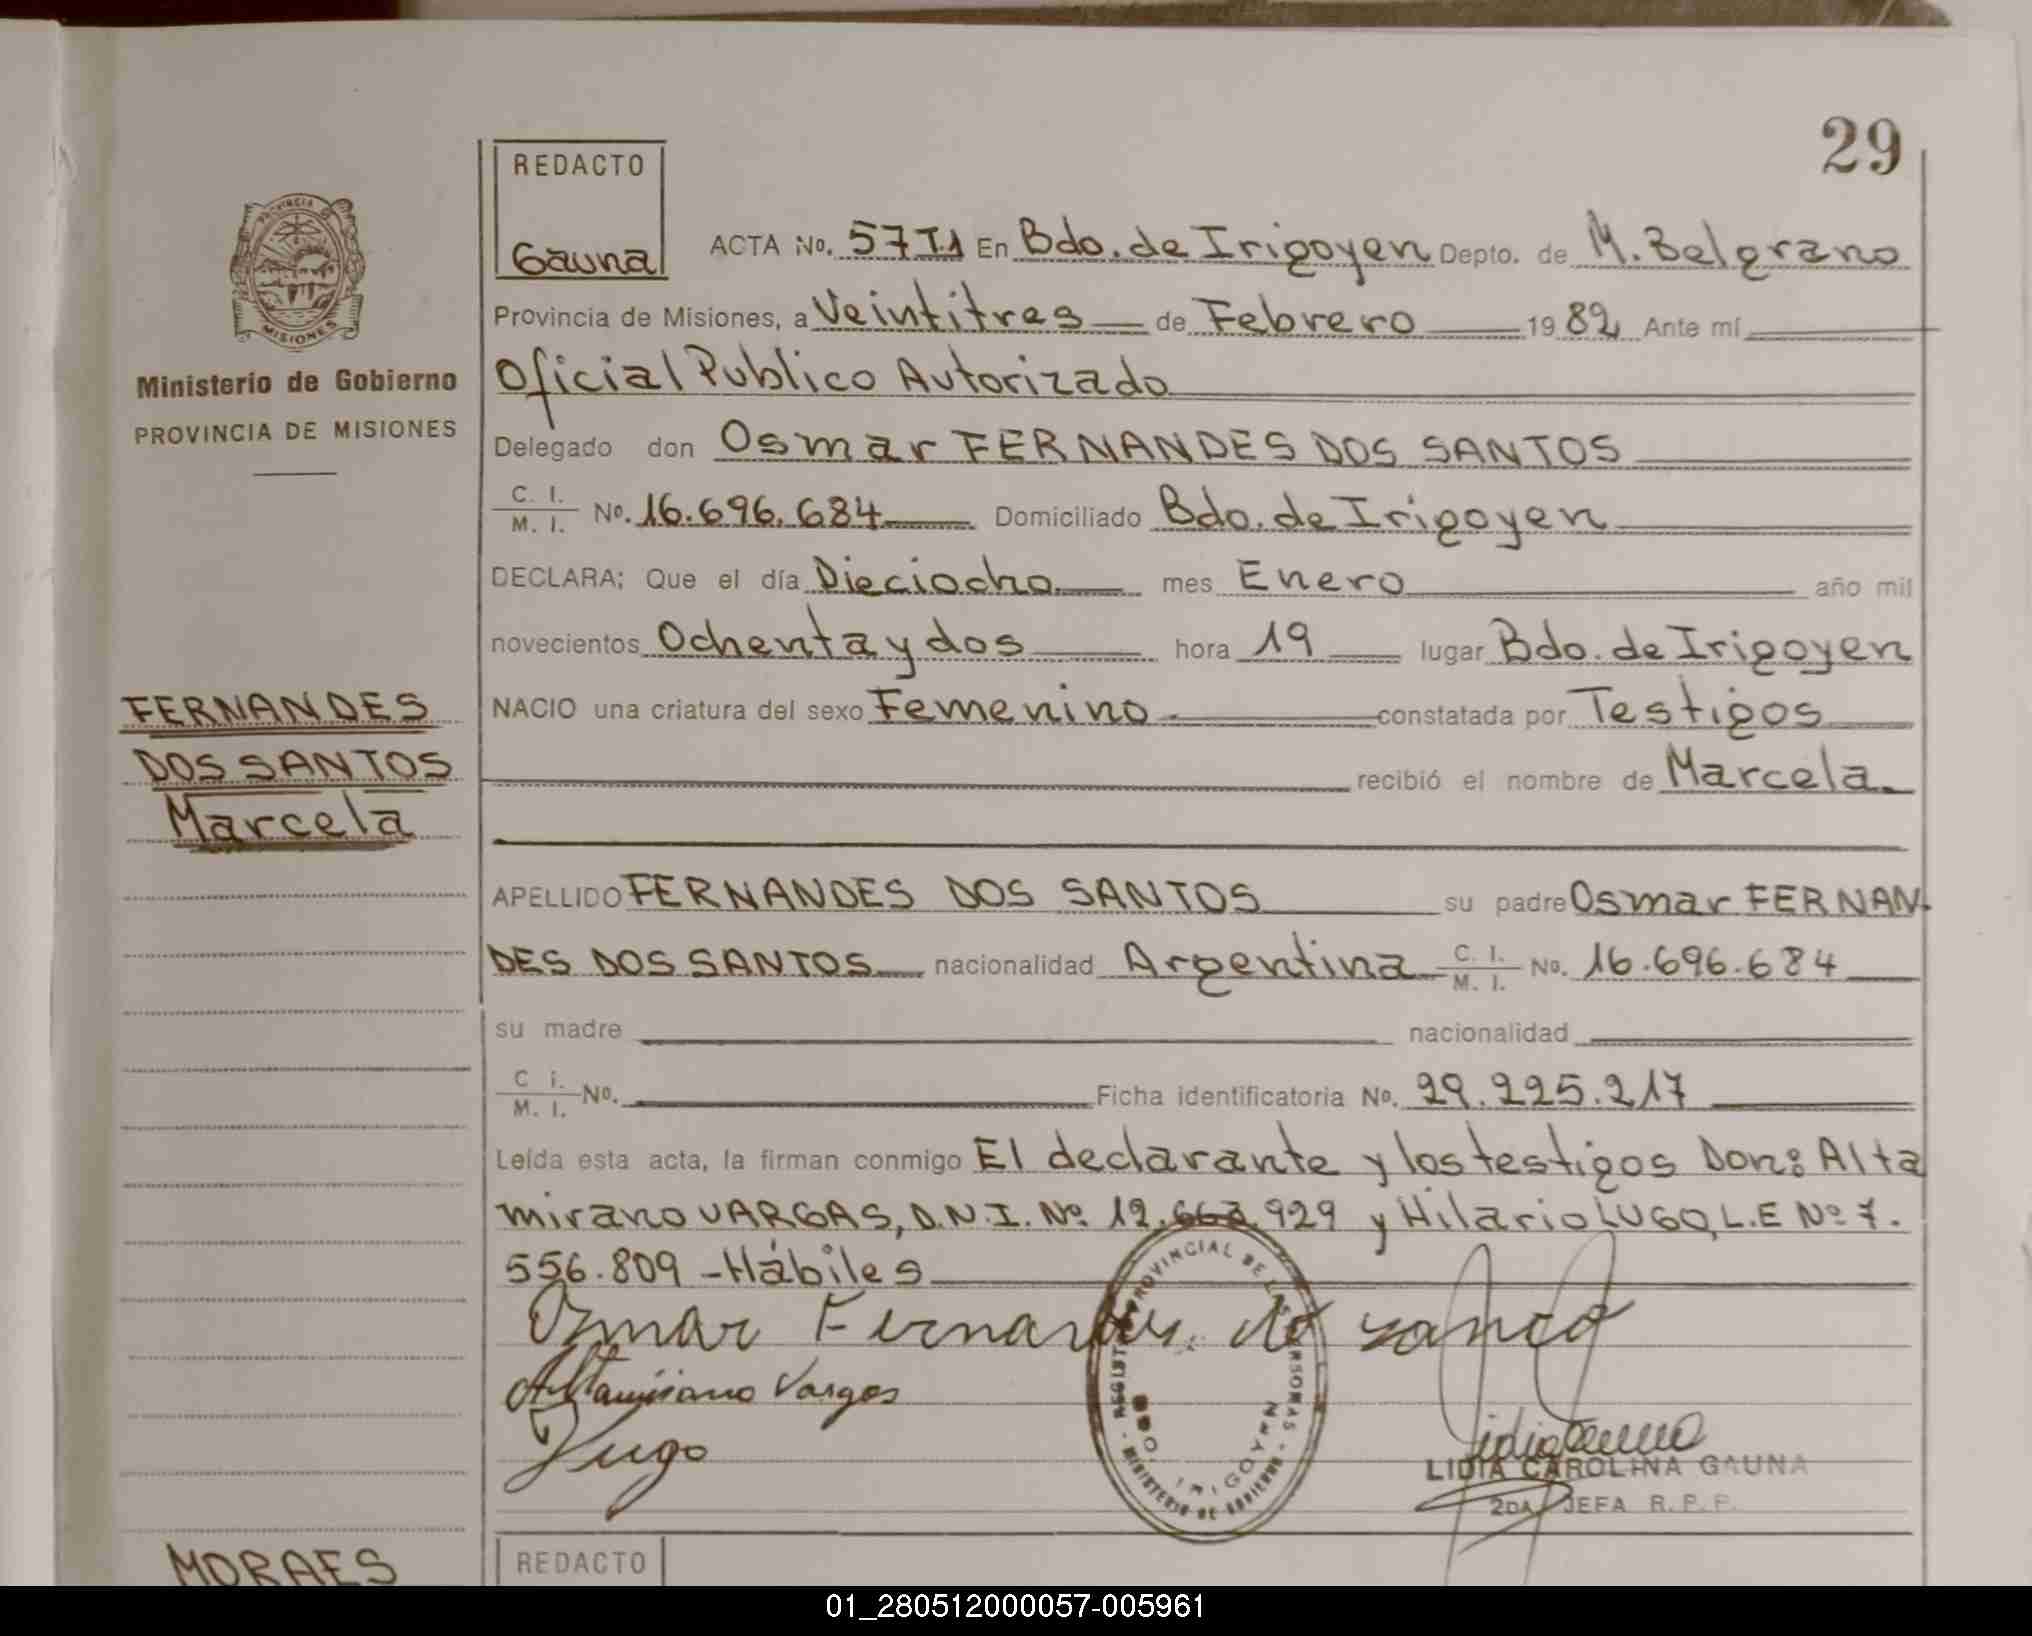 29
REDACTO
Gauna
ACTA No. 57 T.1 En Bdo. de Irigoyen Depto. de M. Belgrano
Provincia de Misiones, a Veintitres de Febrero 19 82 Ante mí
Oficial Publico Autorizado
Delegado don Osmar FERNANDES DOS SANTOS
C. I.
M. I. No. 16.696.684 Domiciliado Bdo. de Irigoyen
DECLARA; Que el día Dieciocho mes Enero año mil
novecientos Ochenta y dos hora 19 lugar Bdo. de Irigoyen
NACIO una criatura del sexo Femenino constatada por Testigos
recibió el nombre de Marcela
APELLIDO FERNANDES DOS SANTOS su padre Osmar FERNAN-
DES DOS SANTOS nacionalidad Argentina C. I. M. I. No. 16.696.684
su madre nacionalidad
C i.
M. I. No. Ficha identificatoria No. 29.225.217
Leída esta acta, la firman conmigo El declarante y los testigos Don: Alta
mirano VARGAS, D.N.I. Nº 12.663.929 y Hilario LUGO, L.E Nº 7.
556.809 - Hábiles
Osmar Fernandes do santo
Altamirano Vargas
Lugo
REGISTRO PROVINCIAL DE LAS PERSONAS
MINISTERIO DE GOBIERNO
BDO. IRIGOYEN
LIDIA CAROLINA GAUNA
2DA JEFA R. P. P.
PROVINCIA DE
MISIONES
Ministerio de Gobierno
PROVINCIA DE MISIONES
FERNANDES
DOS SANTOS
Marcela
MORAES
REDACTO
01_280512000057-005961